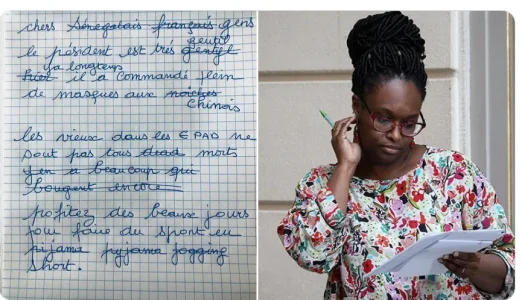 chers Sénégalais français gens
gentil
le président est très gentyl
ya longtemps
hier il a commandé plein
de masques aux noiches
Chinois
les vieux dans les EPAD ne
sont pas tous dead morts
y en a beaucoup qui
bougent encore
profitez des beaux jours
pour faire du sport en
pijama pyjama jogging
short.